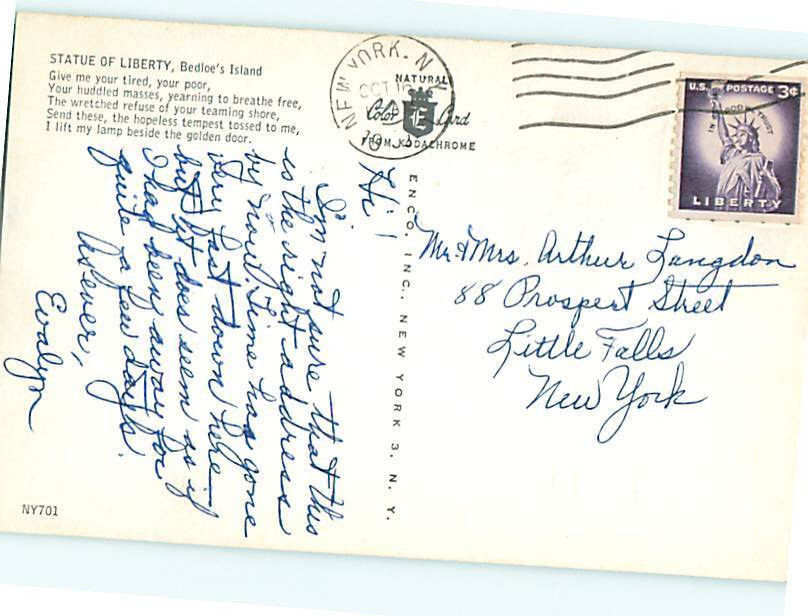 STATUE OF LIBERTY, Bedloe's Island
Give me your tired, your poor,
Your huddled masses, yearning to breathe free,
The wretched refuse of your teaming shore,
Send these, the hopeless tempest tossed to me,
I lift my lamp beside the golden door.
Hi!
I'm not sure that this
is the right address
by now. Time has gone
very fast down here—
but it does seem as if
I had been away for
quite a few days.
As ever,
Evalyn
NY701
NEW YORK, N.Y.
OCT
NATURAL
Color E Card
FROM KODACHROME
ENCO, INC., NEW YORK 3, N. Y.
U.S. POSTAGE 3¢
IN GOD WE TRUST
LIBERTY
Mr. & Mrs. Arthur Langdon
88 Prospect Street
Little Falls
New York